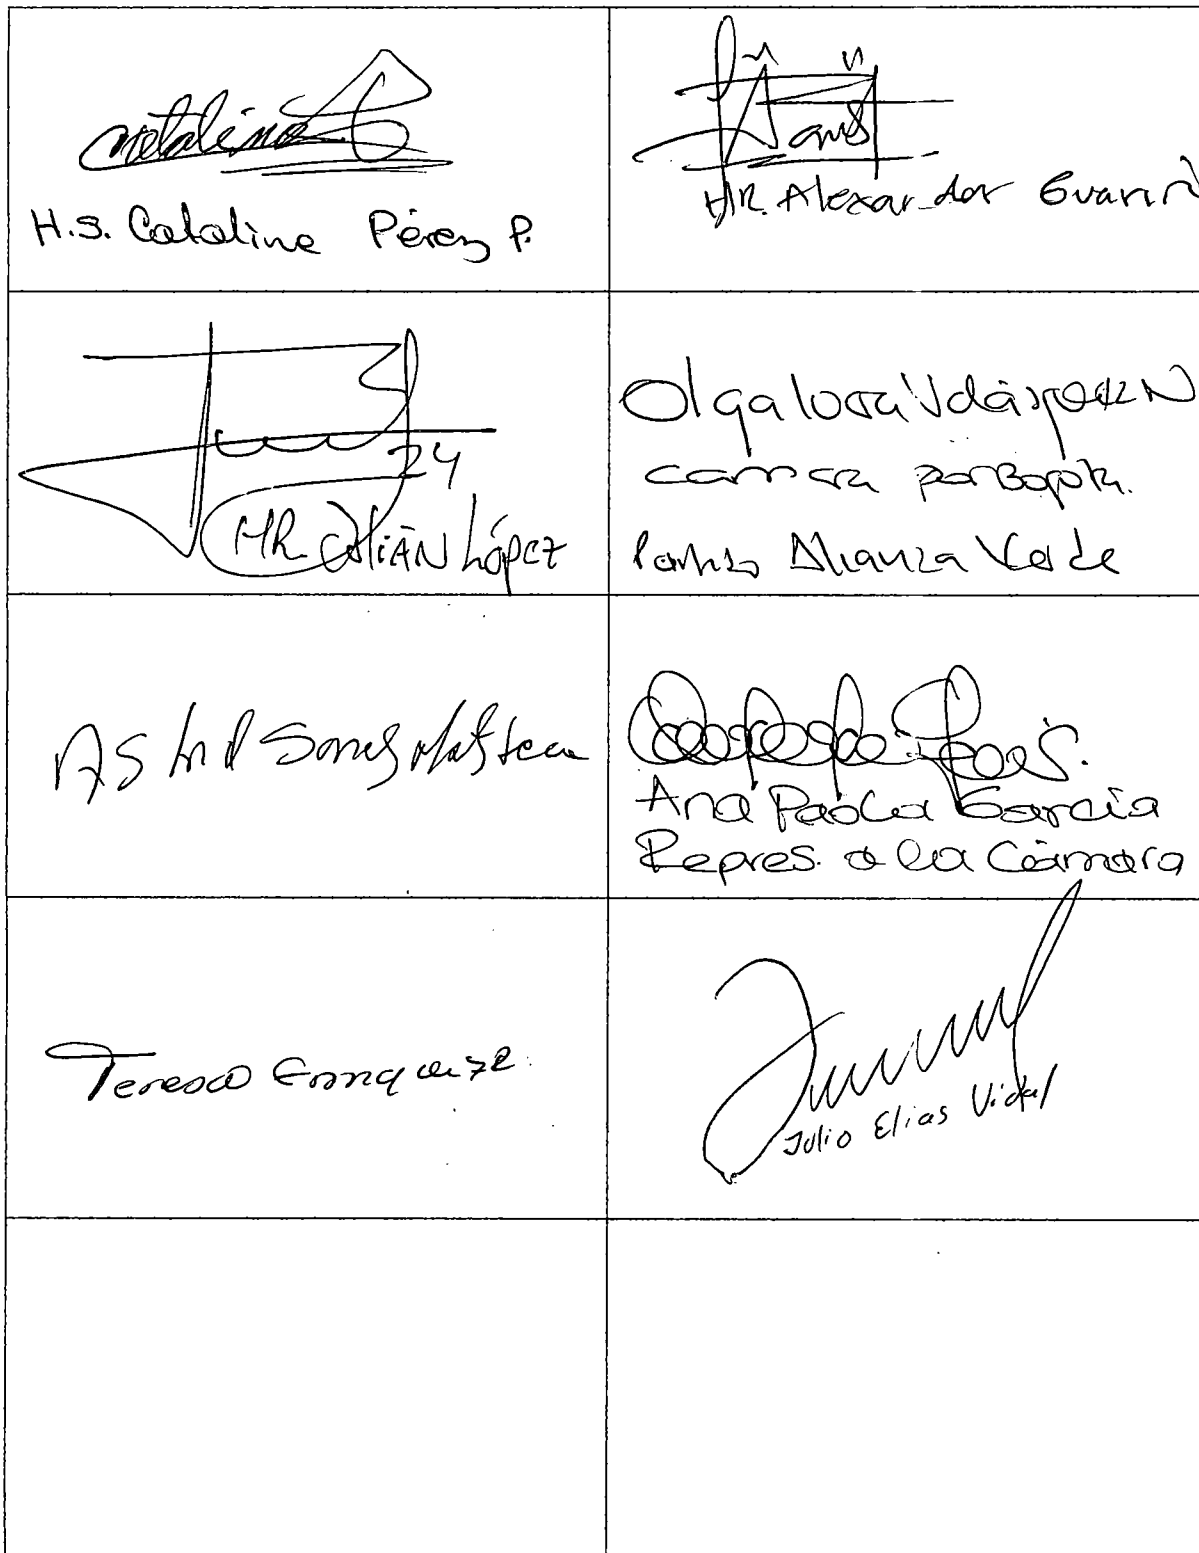 Catalina
H.S. Catalina Pérez P.
HR. Alexander Guarín
24
HR Julián López
Olga Lucía Velásquez N
Camara por Bogotá.
Partido Alianza Verde
Astrid Sánchez Montes de Oca
Ana Paola García
Repres. a la Cámara
Teresa Enríquez R.
Julio Elias Vidal